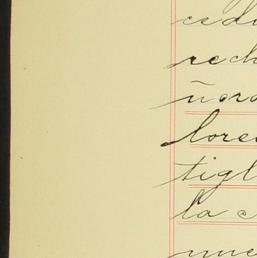 cedu
rech
ñora
lore
tigl
la c
nue